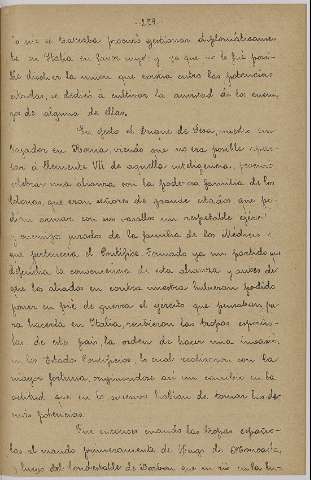 - 229 -
se de Saboya procuró gestionar diplomáticamen-
te en Italia en favor suyo y ya que no le fué posi-
ble deshacer la unión que contra entre las potencias
citadas, se dedicó a cultivar la amistad de los enemi-
gos de alguna de ellas.
En efecto el Duque de Sesa, nuestro em-
bajador en Roma, viendo que no era posible
a Clemente VII de aquella inteligencia, procuró
celebrar una alianza con la poderosa familia de los
Colonas, que eran señores de grandes estados que po-
dían armar con sus vasallos un respetable ejérci-
y enemigos jurados de la familia de los Médicis a
que pertenecía el Pontífice. Formado ya un partido que
defendía la conveniencia de esta alianza y antes de
que los aliados en contra nuestra hubieran podido
poner en pié de guerra el ejército que pensaban pa-
ra hacerla en Italia, recibieron las tropas españo-
las de este país la orden de hacer una invasión
en los Estados Pontificios, lo cual realizaron con la
mayor fortuna, imponiéndose así un cambio en la
actitud que en lo sucesivo habían de tomar las de-
más potencias.
Fue entonces cuando las tropas españo-
las al mando primeramente de Hugo de Moncada,
y luego del Condestable de Borbón que en